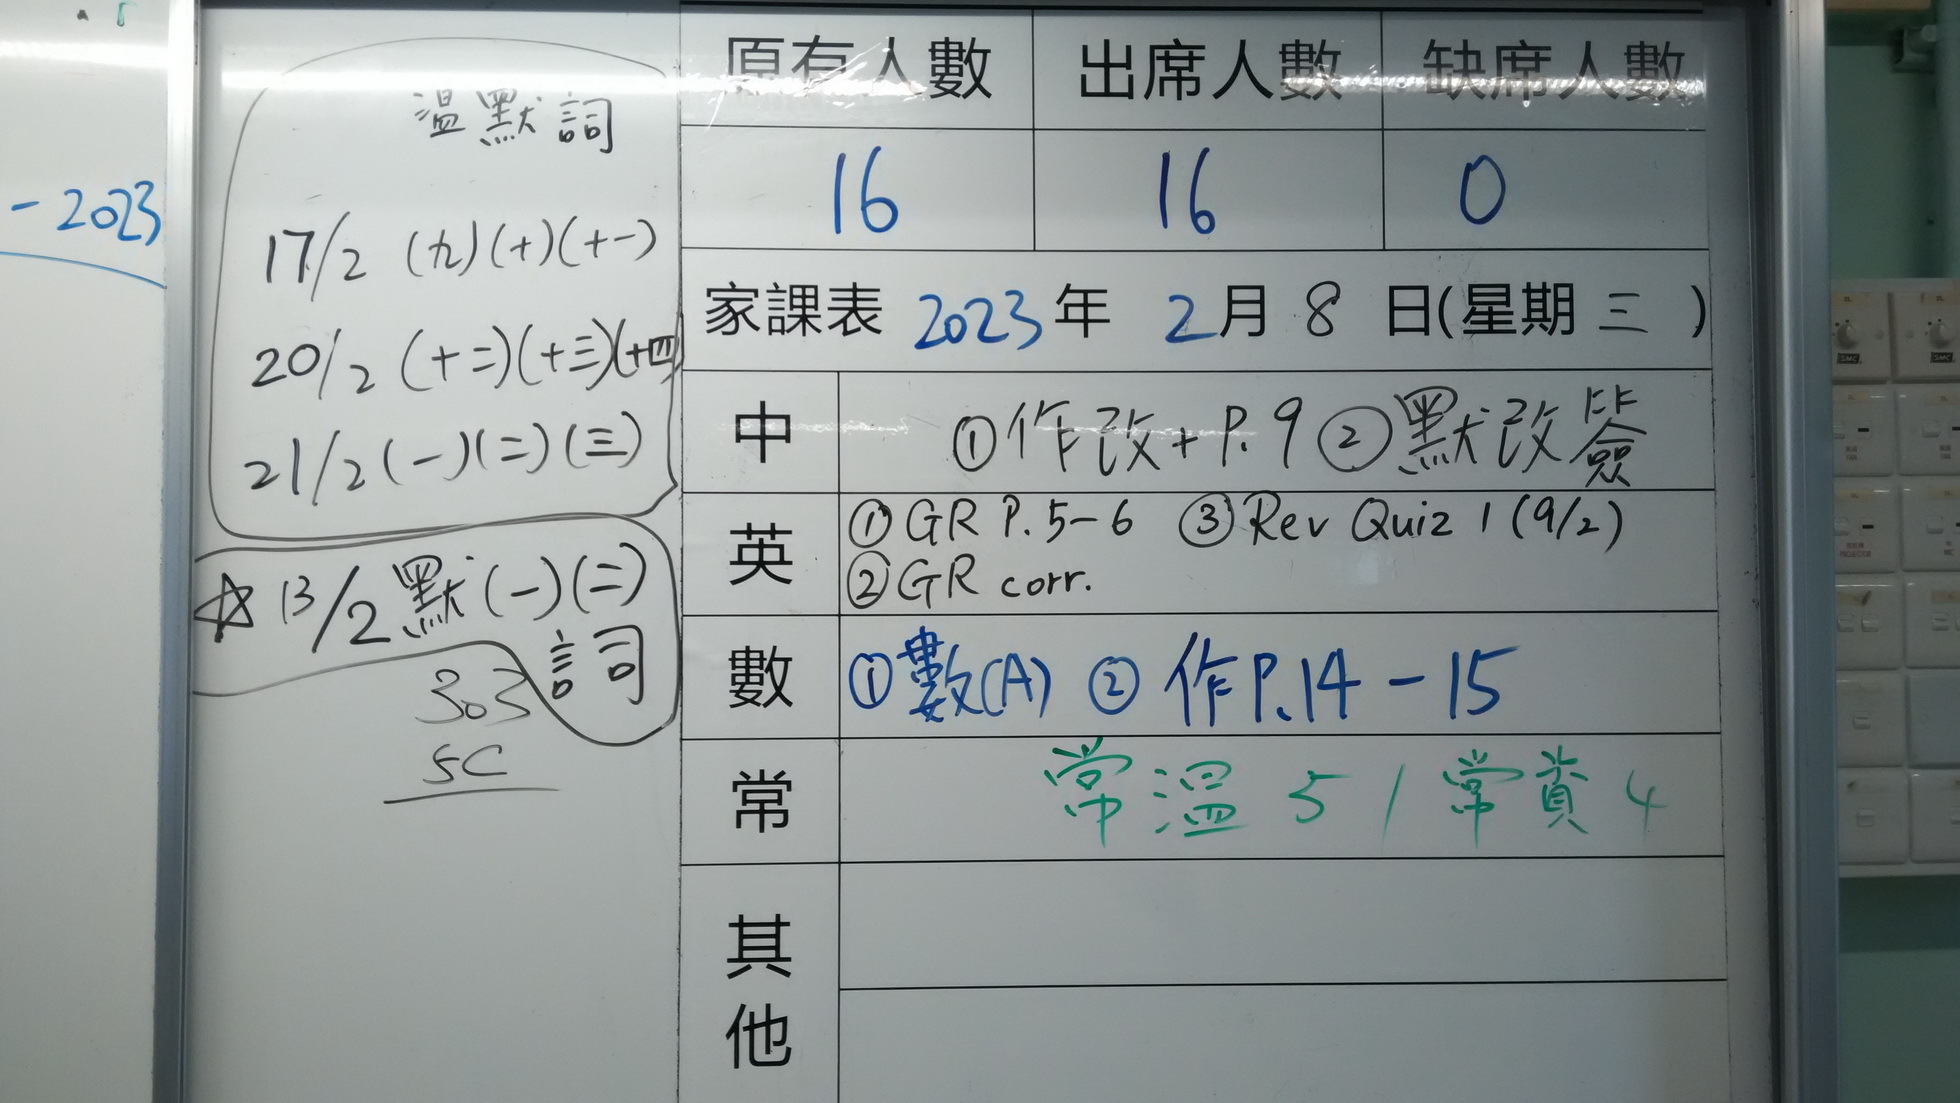 - 2023
溫默詞
17/2 (九)(十)(十一)
20/2 (十二)(十三)(十四)
21/2 (一)(二)(三)
☆ 13/2 默(一)(二)
詞
303
5C
原有人數 出席人數 缺席人數
16 16 0
家課表 2023年 2月 8 日(星期 三 )
中 ①作改+P.9 ②默改簽
英 ①GR P.5-6 ③Rev Quiz 1 (9/2)
②GR corr.
數 ①數(A) ② 作P.14-15
常 常溫 5 / 常資 4
其他